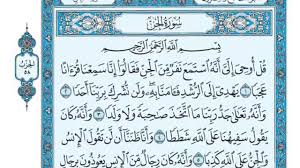 سورة الجن
بسم الله الرحمن الرحيم
قُلْ أُوحِيَ إِلَيَّ أَنَّهُ اسْتَمَعَ نَفَرٌ مِّنَ الْجِنِّ فَقَالُوا إِنَّا سَمِعْنَا قُرْآنًا
عَجَبًا ١ يَهْدِي إِلَى الرُّشْدِ فَآمَنَّا بِهِ وَلَن نُّشْرِكَ بِرَبِّنَا أَحَدًا ٢
وَأَنَّهُ تَعَالَى جَدُّ رَبِّنَا مَا اتَّخَذَ صَاحِبَةً وَلَا وَلَدًا ٣ وَأَنَّهُ كَانَ
يَقُولُ سَفِيهُنَا عَلَى اللَّهِ شَطَطًا ٤ وَأَنَّا ظَنَنَّا أَن لَّن تَقُولَ الْإِنسُ
وَأَنَّهُ كَانَ رِجَالٌ مِّنَ الْإِنسِ يَعُوذُونَ بِرِجَالٍ
الحزب
٥٨